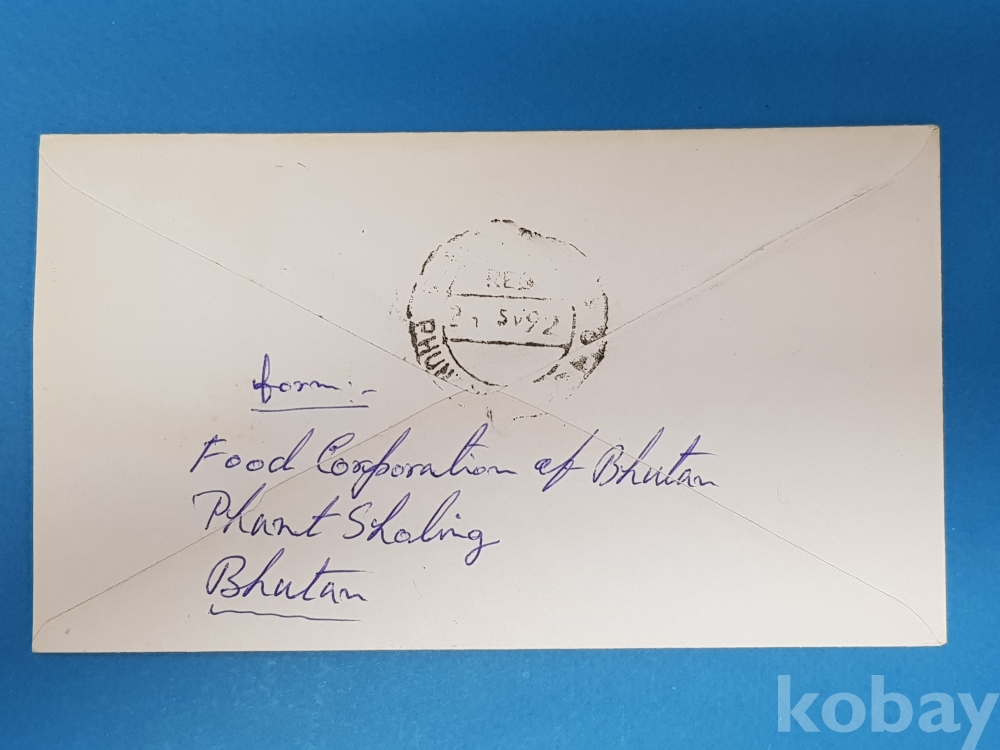 REG
PHUN
form:-
Food Corporation of Bhutan
Phunt Sholing
Bhutan
kobay